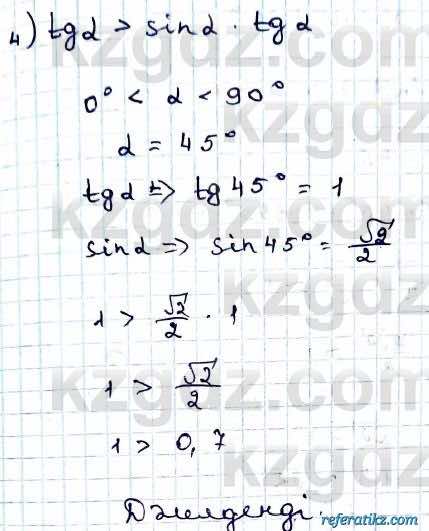 4) tgα > sinα · tgα
0° < α < 90°
α = 45°
tgα => tg45° = 1
sinα => sin45° = √2/2
1 > √2/2 · 1
1 > √2/2
1 > 0,7
Дәлелденді.
kzgdz.com
referatikz.com